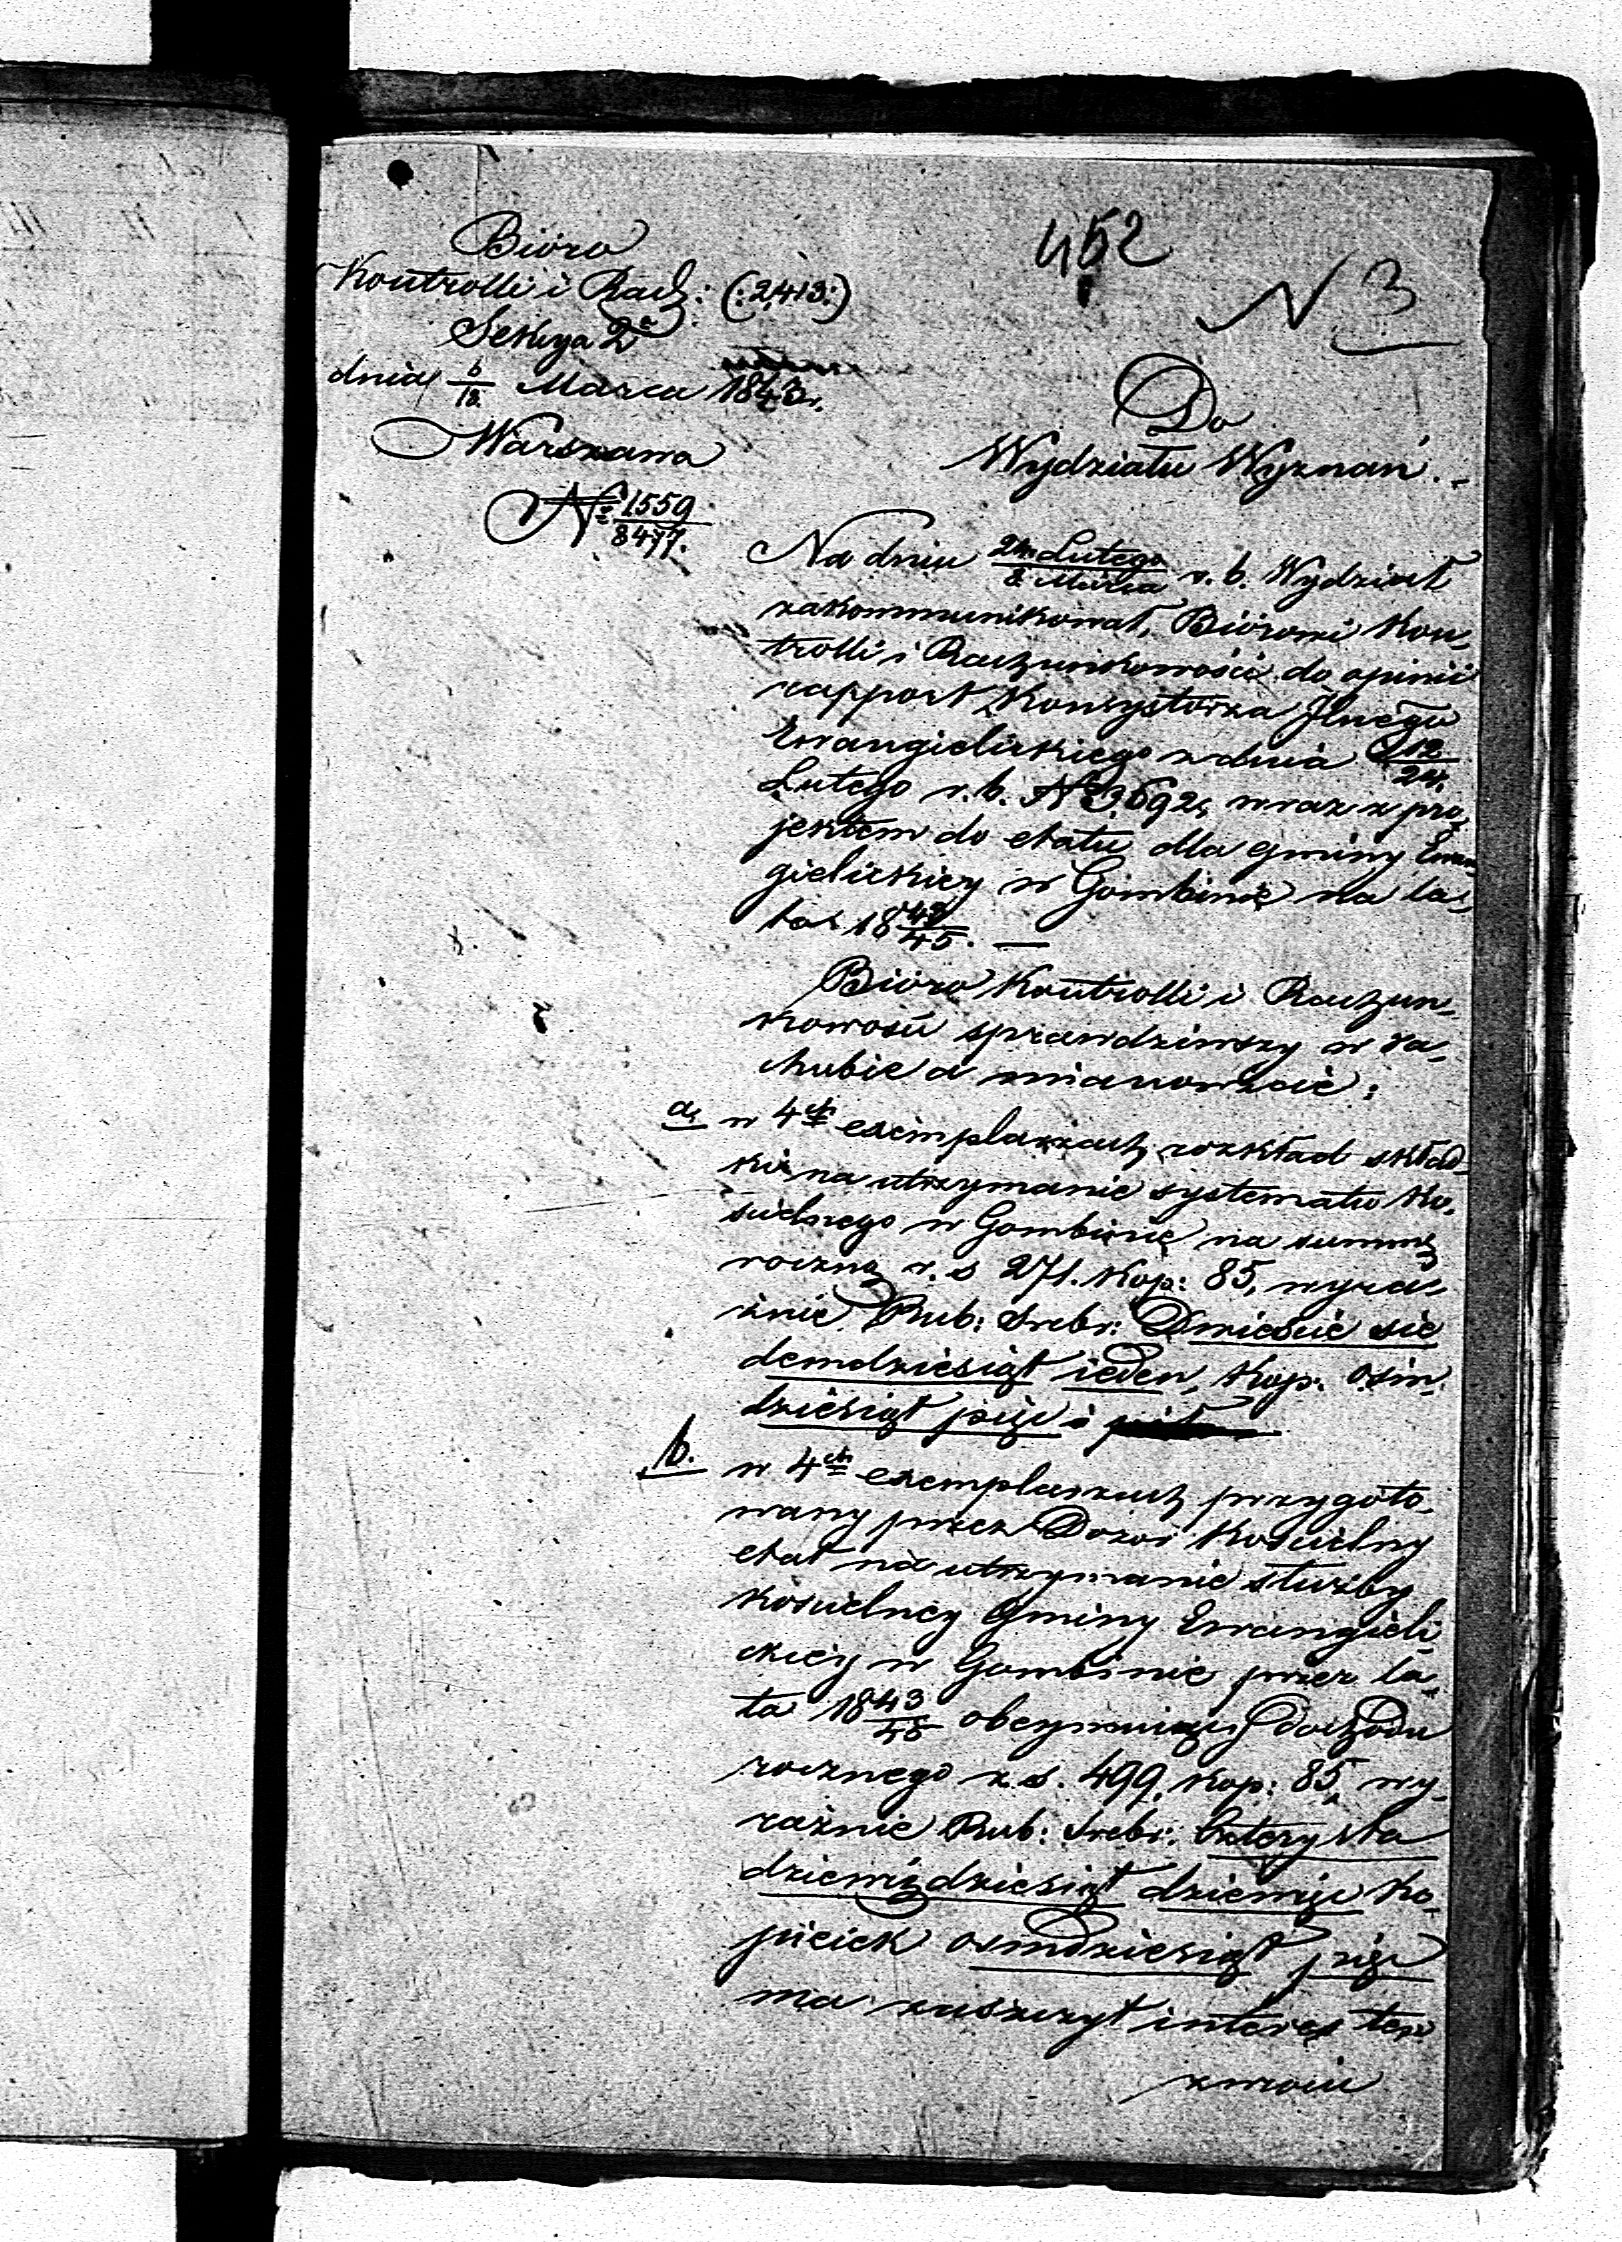 452
N 3
Bióro
Kontrolli i Rach: (:2,413:)
Sekcya 2ª
dnia 6/18 Marca 1843 r.
Warszawa
№ 1559/8477.
Do
Wydziału Wyznań.
Na dniu 24 Lutego/8 Marca r. b. Wydział
zakommunikował, Biórowi Kon-
trolli i Rachunkowości do opinii
rapport Konsystorza Jlnego
Ewangielickiego z dnia 12/24
Lutego r. b. № 3,692, wraz z pro-
jektem do etatu dla gminy Ewan-
gielickiey w Gombinie na la-
ta 1843/45. —
Bióro Kontrolli i Rachun-
kowości sprawdziwszy w ra-
chubie a mianowicie:
a, w 4ch exemplarzach rozkład skład-
ki na utrzymanie systematu Ko-
ścielnego w Gombinie na summę
roczną r. s 271. Kop: 85, wyra-
źnie Rub: Srebr: Dwieście sie
demdziesiąt ieden, Kop: osm-
dziesiąt pięć i
b. w 4ch exemplarzach przygoto-
wany przez Dozór Kościelny
etat na utrzymanie służby
Kościelney Gminy Ewangieli-
ckiey w Gombinie przez la-
ta 1843/45 obeymuiący dochodu
rocznego r. s. 499, Kop: 85, wy-
raźnie Rub: Srebr: Czterysta
dziewięćdziesiąt dziewięć Ko-
pieiek osmdziesiąt pięć
ma zaszczyt interes ten
zwróci